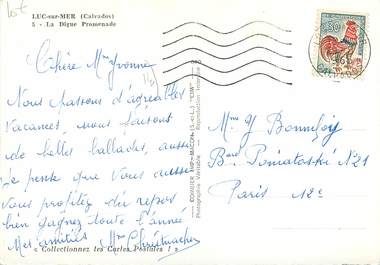 LUC-sur-MER (Calvados)
5 - La Digue Promenade
Chère Mme Yvonne
Nous passons d'agréables
vacances, nous faisons
de belles ballades, aussi
Je pense que vous aussi
vous profitez du repos
bien gagnez toute l'année
Mes amitiés Mme
« Collectionnez les Cartes Postales ! »
COMBIER IMP. MACON (S.-et-L.) "CIM"
Photographie Véritable - Reproduction Interdite
0,30
Mme Y Bonnefoy
Bard Poniatoski N°21
Paris 12e